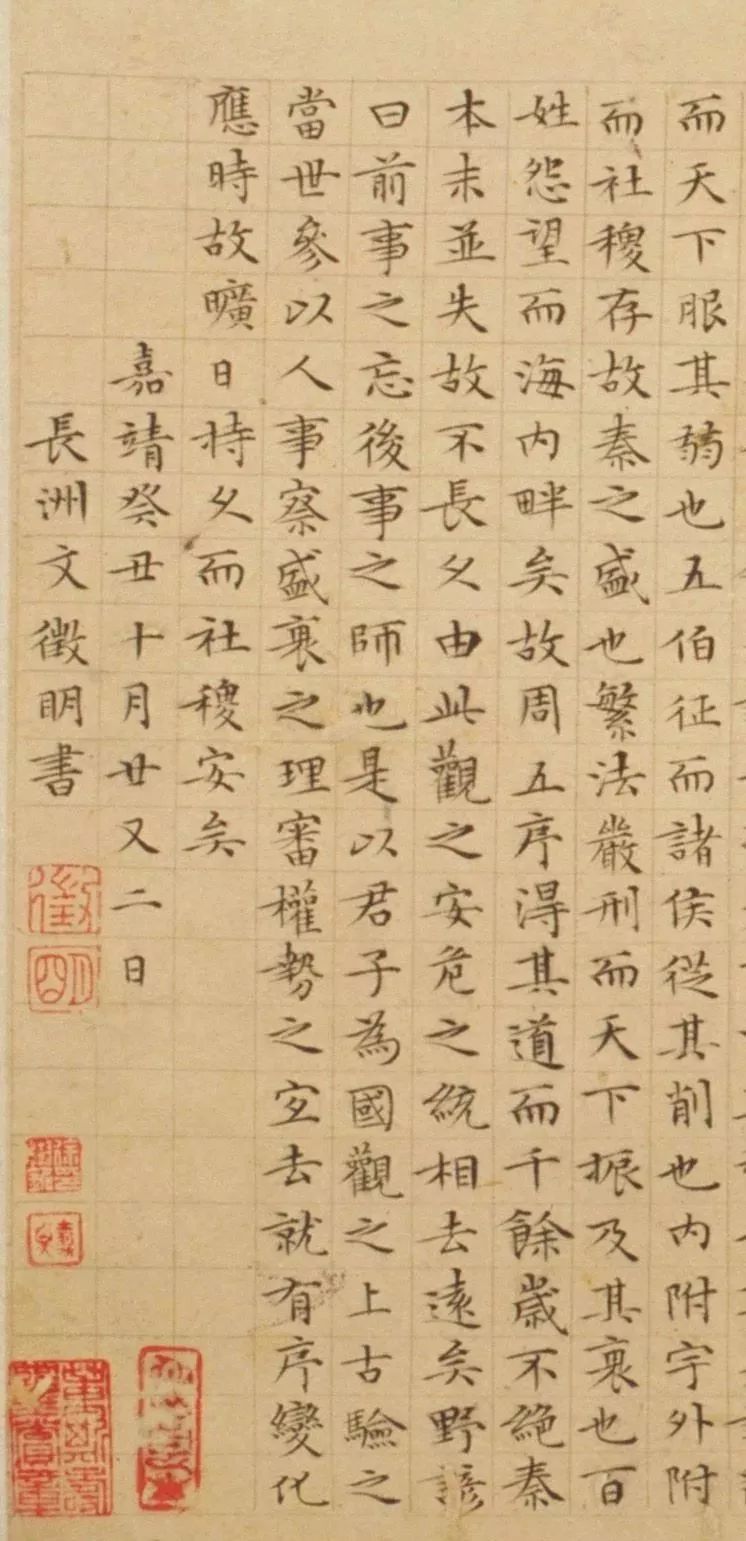 而天下服其弱也五伯征而諸侯從其削也内附守外附
而社稷存故秦之盛也繁法嚴刑而天下振及其衰也百
姓怨望而海内畔矣故周五序得其道而千餘歲不絕秦
本末並失故不長久由此觀之安危之統相去遠矣野諺
曰前事之忘後事之師也是以君子為國觀之上古驗之
當世參以人事察盛衰之理審權勢之宜去就有序變化
應時故曠日持久而社稷安矣
嘉靖癸丑十月廿又二日
長洲文徵明書
徵
明